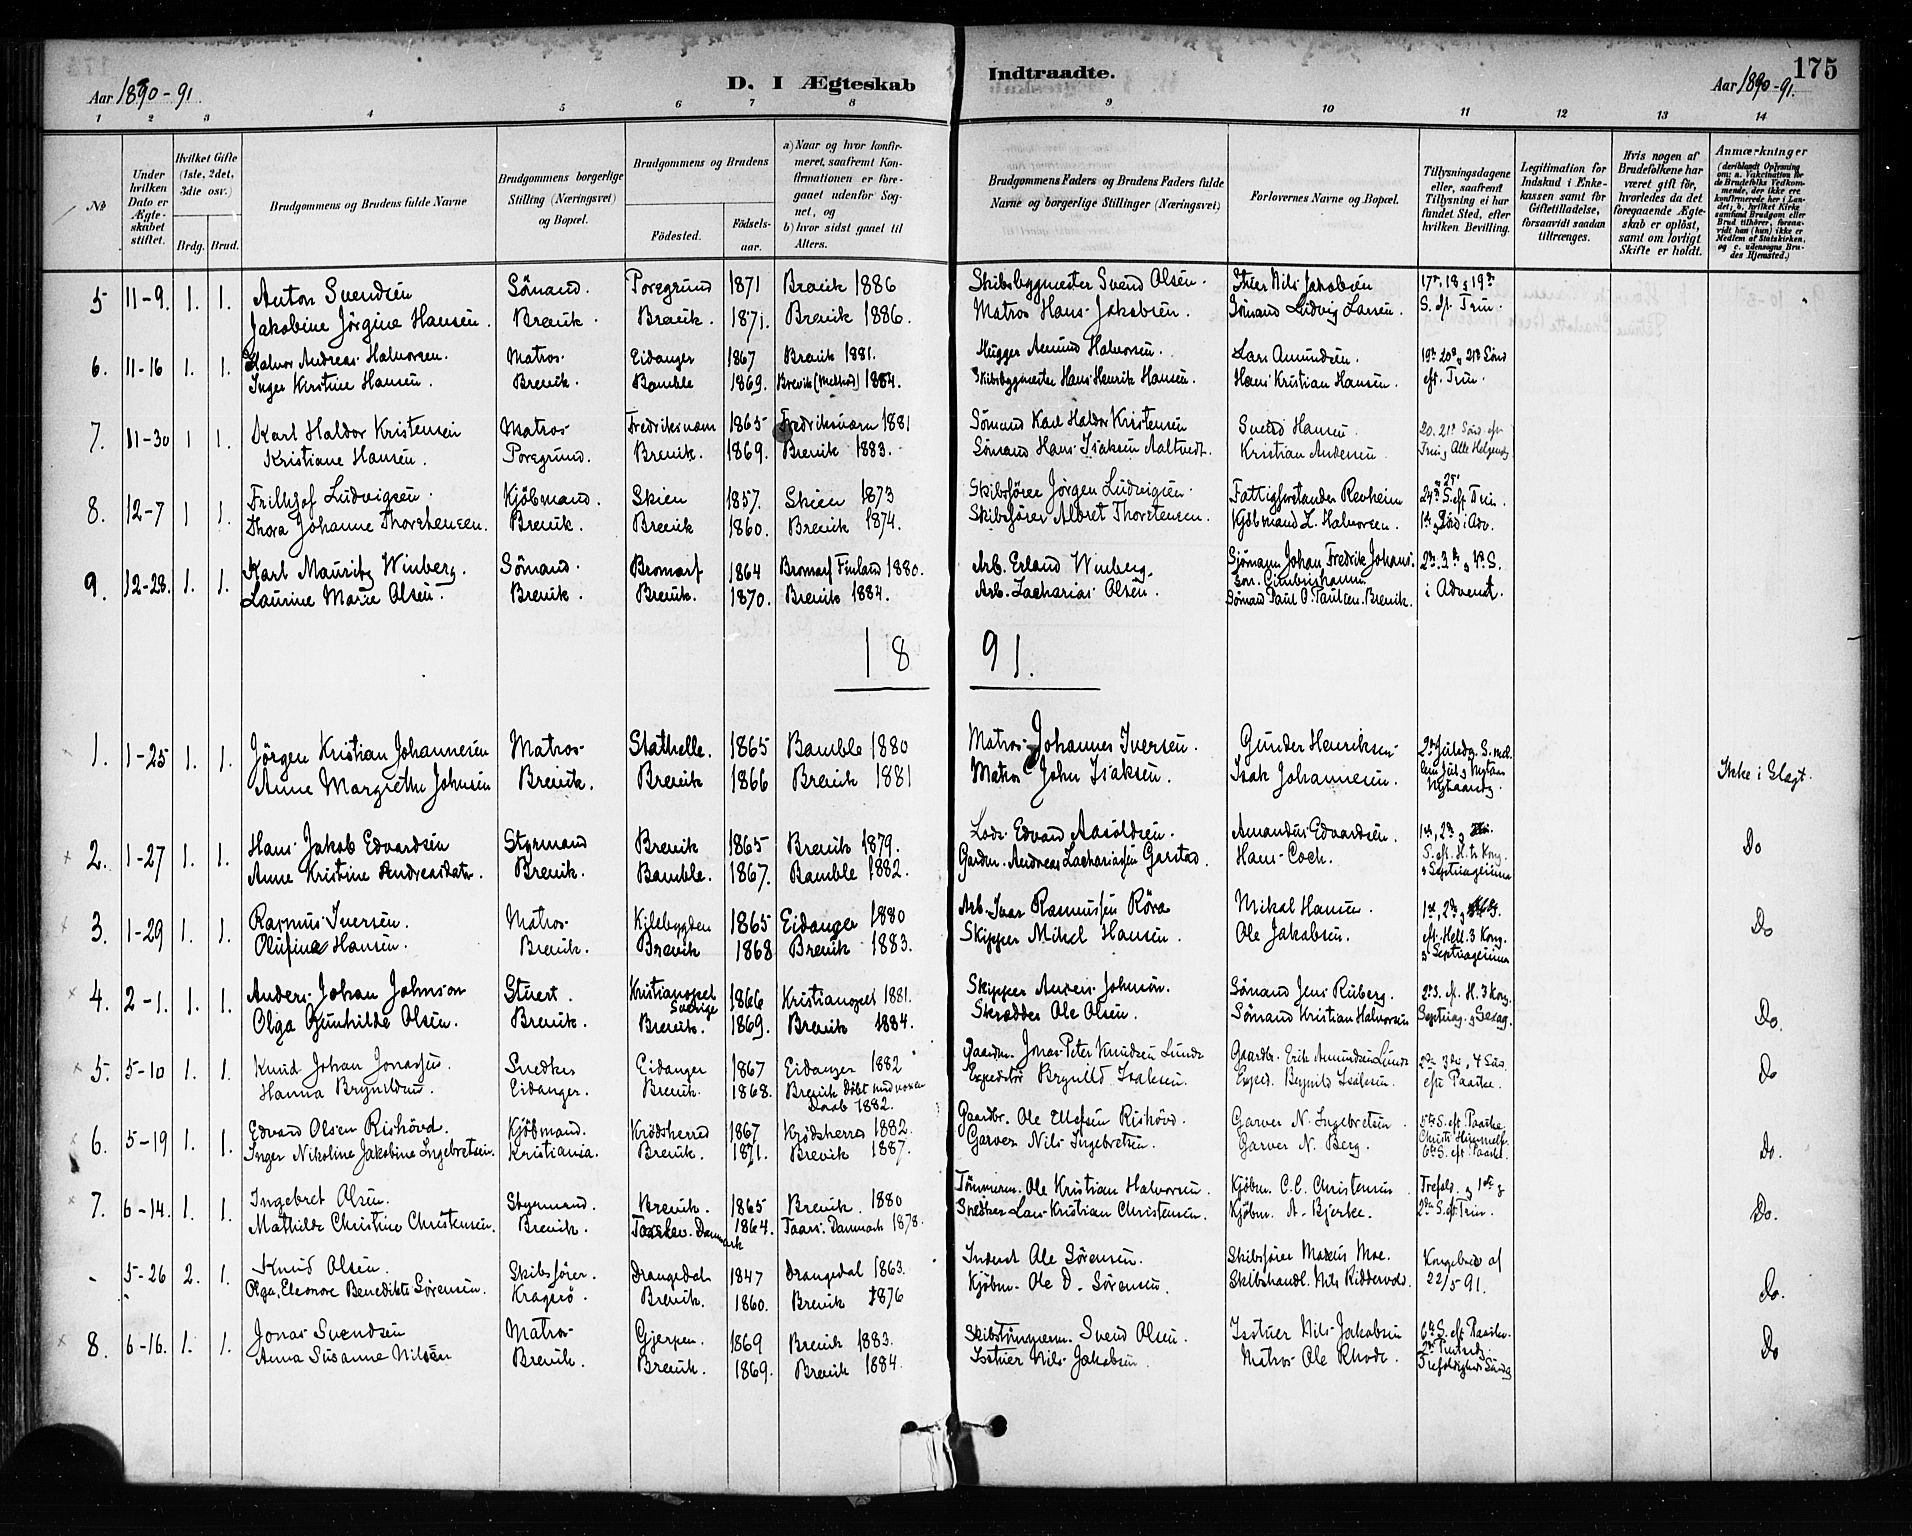 Aar 1890-91
D. I Ægteskab Indtraadte.
Aar 1890-91.
175
1 2 3 4 5 6 7 8 9 10 11 12 13 14
No
Under hvilken Dato er Ægteskabet stiftet.
Hvilket Gifte (1ste, 2det, 3die osv.)
Brdg. Brud.
Brudgommens og Brudens fulde Navne
Brudgommens borgerlige Stilling (Næringsvei) og Bopæl.
Brudgommens og Brudens
Fødested. Fødselsaar.
a) Naar og hvor konfirmeret, saafremt Konfirmationen er foregaaet udenfor Sognet, og
b) hvor sidst gaaet til Alters.
Brudgommens Faders og Brudens Faders fulde Navne og borgerlige Stillinger (Næringsvei)
Forlovernes Navne og Bopæl.
Tillysningsdagene eller, saafremt Tillysning ei har fundet Sted, efter hvilken Bevilling.
Legitimation for Indskud i Enkekassen samt for Giftetilladelse, forsaavidt saadan tiltrænges.
Hvis nogen af Brudefolkene har været gift før, hvorledes da det foregaaende Ægteskab er opløst, samt om lovligt Skifte er holdt.
Anmærkninger (deriblandt Oplysning om: a. Vakcination for de Brudefolks Vedkommende, der ikke ere konfirmerede her i Landet; b. hvilket Kirkesamfund Brudgom eller Brud tilhører, forsaavidt han (hun) ikke er Medlem af Statskirken, og c. udensogns Brudes Hjemsted.)
5 11-9. 1. 1. Anton Svendsen Sömand. Porsgrund 1871 Brevik 1886 Skibsbygmester Svend Olsen. Nils Jakobsen 17de, 18 & 19de
Jakobine Jörgine Hansen. Brevik. Brevik. 1871. Brevik 1886. Matros Hans Jakobsen. Sömand Ludvig Larsen. S. ef. Trin.
6. 11-16 1. 1. Halvor Andreas Halvorsen. Matros. Eidanger 1867 Brevik 1881. Amund Halvorsen. Lars Amundsen. 19de 20de & 21de Sönd
Inger Kirstine Hansen. Brevik. Bamble 1869. Brevik 1884. Skibsbygmester Hans Henrik Hansen. Hans Kristian Hansen. eft. Trin.
7. 11-30 1 1. Karl Haldor Kristensen Matros Fredriksværn 1865 Fredriksværn 1881 Sömand Karl Haldor Kristensen Svend Hansen. 20. 21de Sönd eft
Kristiane Hansen. Porsgrund. Brevik. 1869. Brevik 1883. Sömand Hans Isaksen Aaltvedt. Kristian Andersen Trin & Alle Helgensd
8. 12-7 1 1. Frithjof Ludvigsen. Kjöbmand. Skien 1857. Skien 1873 Skibsförer Jörgen Ludvigsen. Fattigforstander Revheim 24de & 25 S. eft Trin.
Thora Johanne Thorstensen. Brevik. Brevik 1860. Brevik 1874. Skibsförer Albret Thorstensen. Kjöbmand L. Halvorsen. 1ste Sönd i Adv.
9. 12-28. 1. 1. Karl Mauritz Winberg. Sömand. Bromarf 1864 Bromarf Finland 1880. Arb. Erland Winberg. Sjömann Johan Fredrik Johans- 2de 3de & 4de S.
son. Cimbrishamn
Laurine Marie Olsen. Brevik. Brevik. 1870. Brevik 1884. Arb. Zacharias Olsen. Sömand Paul O. Paulsen. Brevik. i Advent.
1891.
1. 1-25 1. 1. Jörgen Kristian Johannesen Matros Stathelle. 1865 Bamble 1880 Matros Johannes Iversen. Gunder Henriksen 2den Juledg. S. mel.
Anne Margrethe Johnsen Brevik. Brevik 1866 Brevik 1881 Matros John Isaksen. Isak Johannesen. lem Jul & Nytaar Nytaarsdg. Ikke i Slægt.
2. 1-27 1. 1. Hans Jakob Edvardsen Styrmand Brevik 1865 Brevik 1879. Lods Edvard Aasoldsen. Amandus Edvardsen. 1ste, 2de &
Anne Kristine Andreasdatr. Brevik. Bamble. 1867. Bamble 1882. Gardm. Andreas Zachariasen Garstad. Hans Coch. S. eft. H. tr. Kong. & Septuagesima Do
3. 1-29 1. 1. Rasmus Iversen. Matros Kilebygden 1865 Eidanger 1880 Arb. Ivar Rasmussen Röra Mikal Hansen. 1ste, 2de &
Olufine Hansen. Brevik. Brevik 1868 Brevik 1883. Skipper Mikel Hansen. Ole Jakobsen. eft. Hell. 3 Kong. & Septuagesima Do
4. 2-1. 1. 1. Anders Johan Johnson Stuert. Kristianopel Sverige 1866 Kristianopel 1881. Skipper Johnson. Sömand Jens Ruberg. 2de S. ef. H. 3 Kong.
Olga Gunhilde Olsen. Brevik. Brevik. 1869. Brevik 1884. Skrædder Ole Olsen. Sömand Kristian Halvorsen Septuag. & Sexag. Do.
5. 5-10 1. 1. Knud Johan Jonassen. Snedker Eidanger 1867 Eidanger 1882 Gaardm. Jonas Peter Knudsen Lunde Gaardbr. Erik Amundsen Lunde 2den 3die, 4 Sön.
Hanna Brynildsen. Eidanger. Brevik. 1868. Brevik Döbt med voxen Daab 1882. Expeditör Brynild Isaksen. Exped. Brynild Isaksen. efter Paaske. Do
6. 5-19 1. 1. Edvard Olsen Rishövd. Kjöbmand. Krödsherred 1867 Krödsherred 1882. Gaardbr. Ole Ellefsen Rishövd. Garver N. Ingebretsen. 5te S. eft. Paaske
Inger Nikoline Jakobine Ingebretsen. Kristiania. Brevik. 1871. Brevik 1887. Garver Nils Ingebretsen. Garver N. Berg. Christi Himmelf. 6te S. eft Paaske. Do.
7. 6-14. 1. 1. Ingebret Olsen. Styrmand Brevik. 1865 Brevik. 1880 Tömmerm. Ole Kristian Halvorsen. Kjöbm. C. C. Christensen Trefold. & 1ste &
Mathilde Christine Christensen. Brevik. Taarslev. Danmark 1864. Taars. Danmark 1878. Snedker Lars Kristian Christensen. Kjöbm. A. Bjerke. 2den S. eft Trin. Do.
- 5-26 2. 1. Knud Olsen. Skibsförer. Drangedal 1847 Drangedal 1863. Inderst Ole Sörensen. Skibsförer Moe. Kongebrev af
Olga Eleonore Benedikte Sörensen. Kragerö. Brevik. 1860. Brevik 1876 Kjöbm. Ole D. Sörensen. Skibshandl. Nils Riddervold. 22/5 91. Do.
8. 6-16. 1. 1. Jonas Svendsen Matros Gjerpen. 1869 Brevik 1883. Skibstömmerm. Svend Olsen. Nils Jakobsen 6te S. eft Paaske.
Anna Susanne Nilsen Brevik. Brevik. 1869. Brevik 1884. Nils Jakobsen. Matros Ole Rhode. 2den Pintsedg. Trefoldigheds Söndg Do